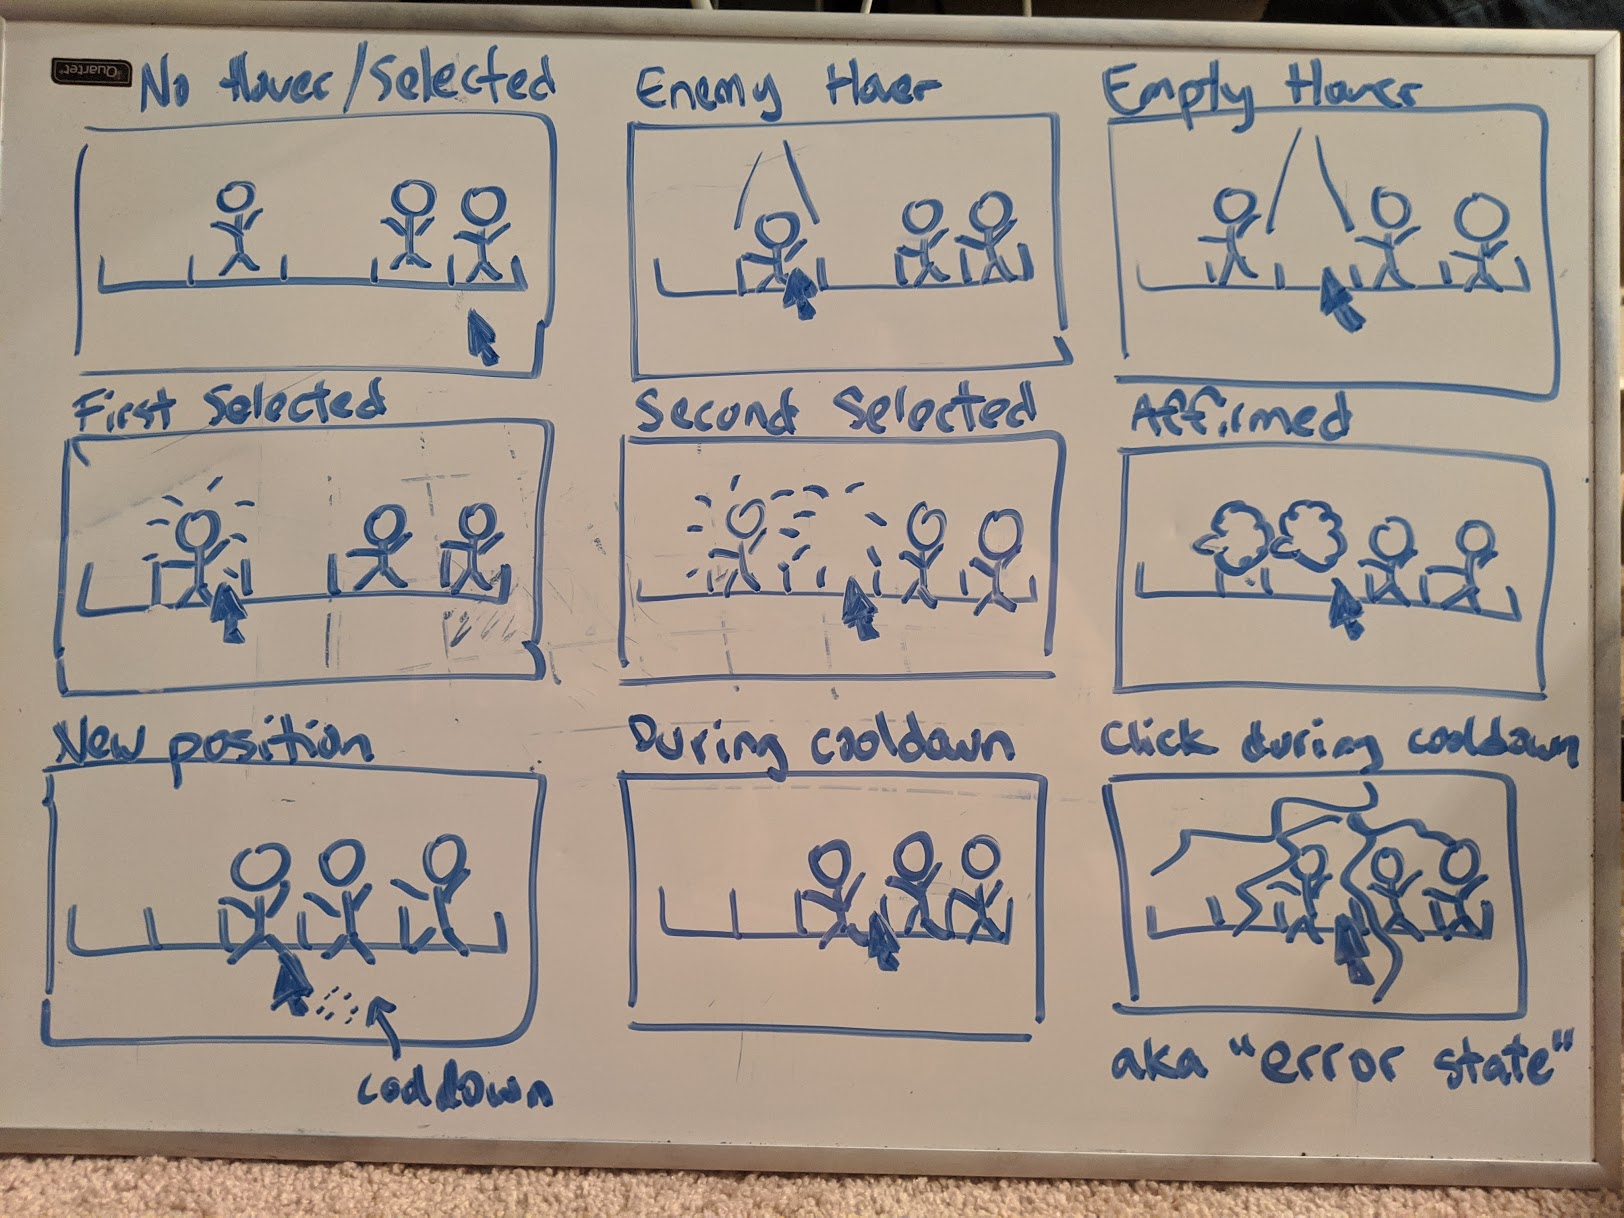 Quartet
No Hover/Selected
Enemy Hover
Empty Hover
First Selected
Second Selected
Affirmed
New position
During cooldown
Click during cooldown
cooldown
aka "error state"